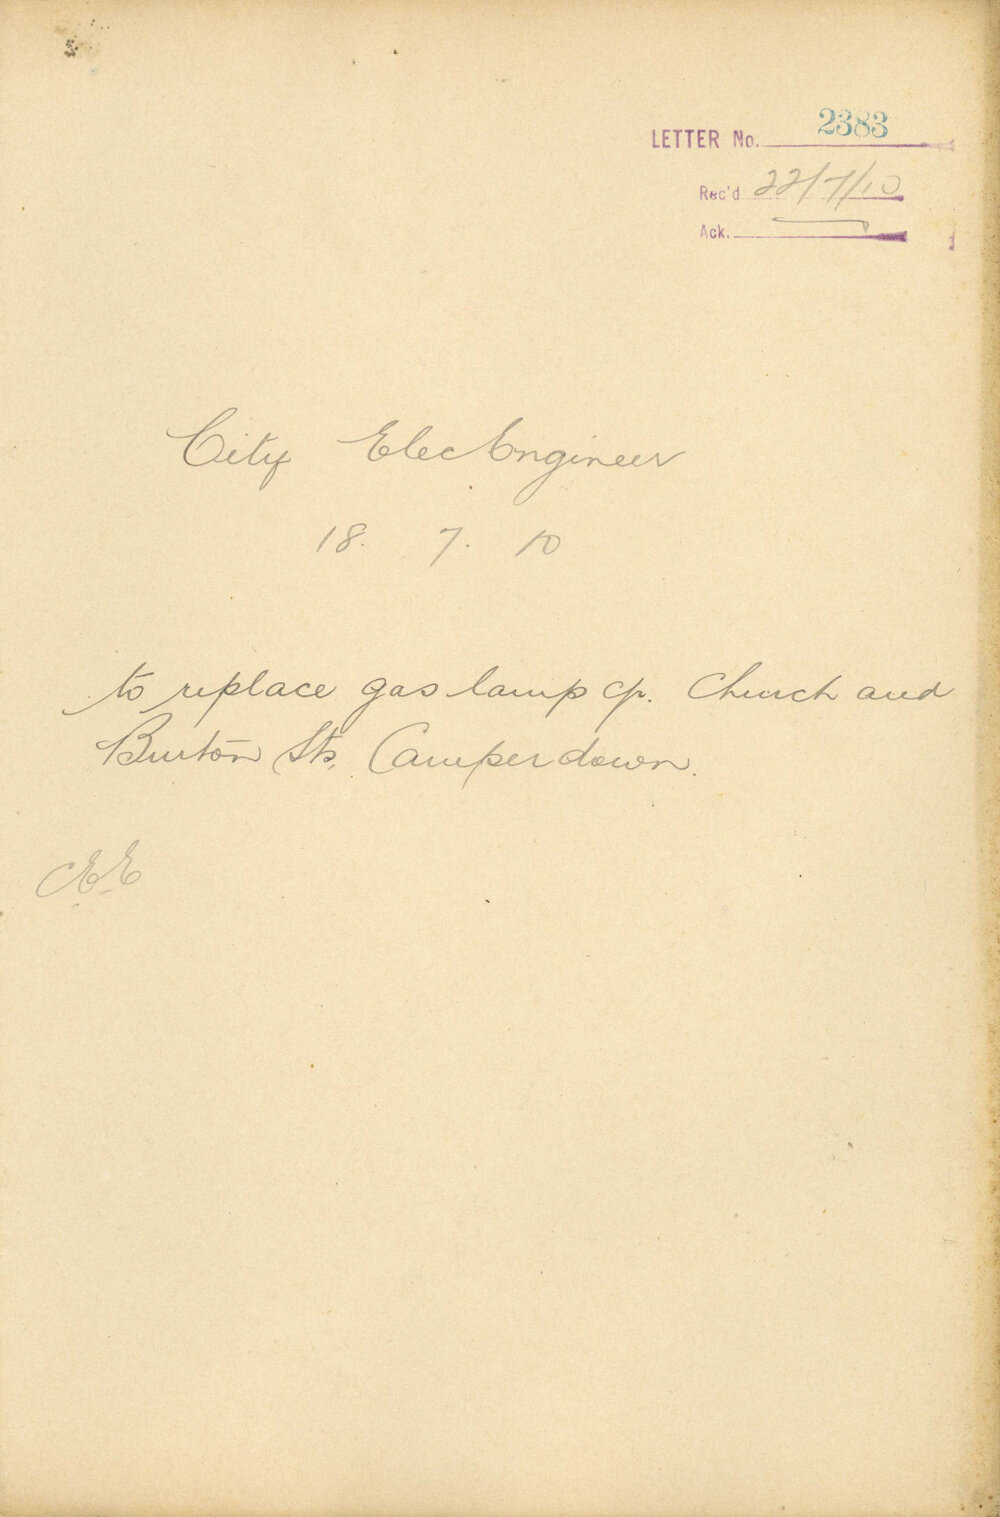 LETTER No. 2383
Rec'd 22/7/10
Ack.
City Elec Engineer
18. 7. 10
to replace gas lamp cr. Church and
Burton Sts, Camperdown.
CEE